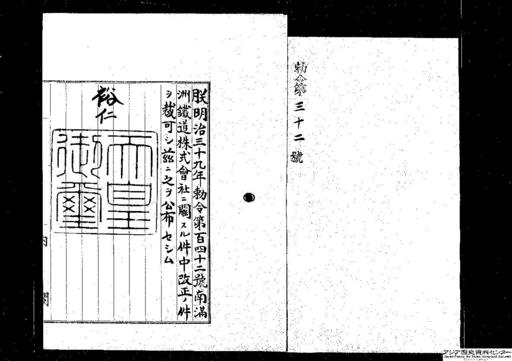 勅令第三十二號
朕明治三十九年勅令第百四十二號南滿
洲鐵道株式會社ニ關スル件中改正ノ件
ヲ裁可シ茲ニ之ヲ公布セシム
裕仁
天皇
御璽
内閣
アジア歴史資料センター